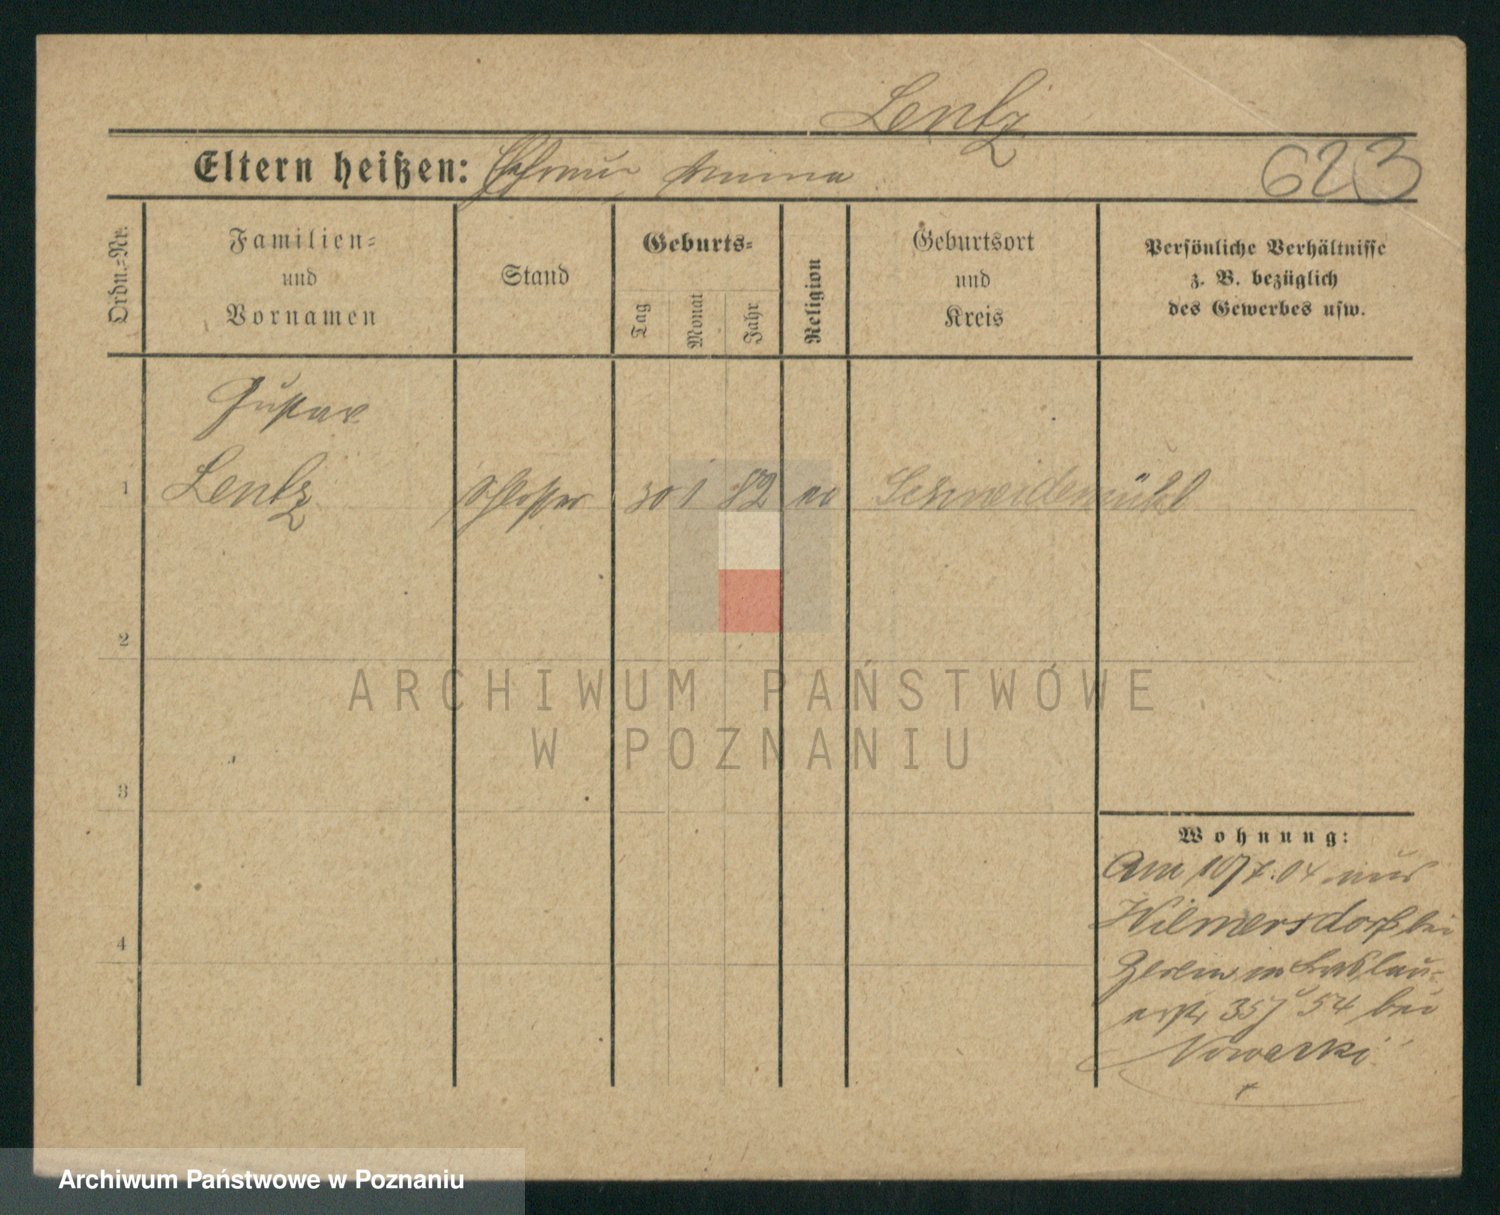 Lentz
Eltern heißen:
623
Ordn.-Nr.
Familien-
und
Vornamen
Stand
Geburts-
Tag
Monat
Jahr
Religion
Geburtsort
und
Kreis
Persönliche Verhältnisse
z. B. bezüglich
des Gewerbes usw.
Gustav
1 Lentz Schlosser 30 1 82 Schneidemühl
2
3
4
Wohnung:
Am 10/7.04 nach
Wilmersdorf bei
Berlin
35 54 bei
Nowacki
ARCHIWUM PAŃSTWOWE
W POZNANIU
Archiwum Państwowe w Poznaniu